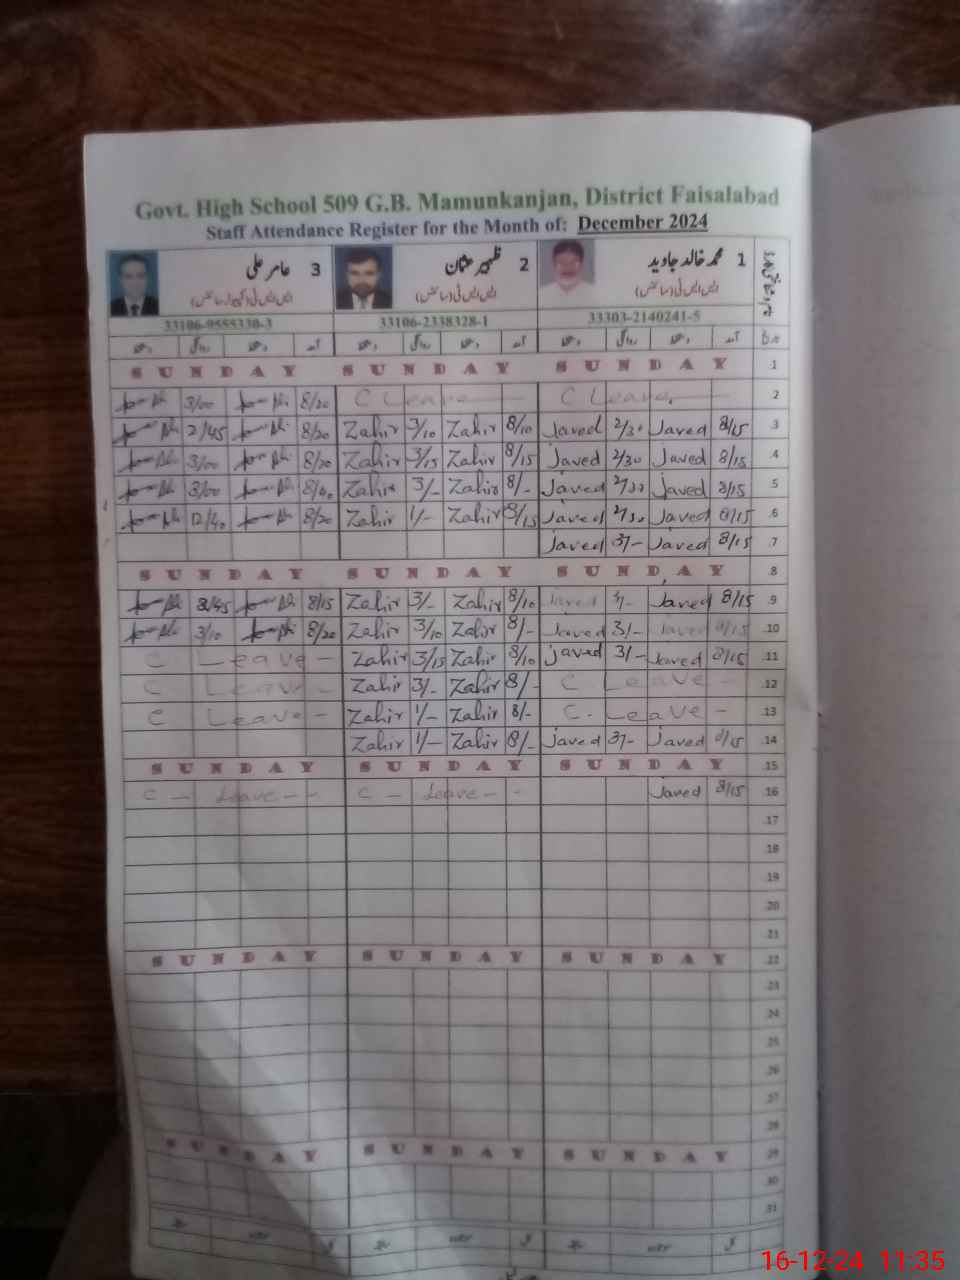 Govt. High School 509 G.B. Mamunkanjan, District Faisalabad
Staff Attendance Register for the Month of: December 2024
1 محمد خالد جاوید 2 ظہیر عثمان 3 عامر علی
ایس ایس ٹی (سائنس) ایس ایس ٹی (سائنس) ایس ایس ٹی (کمپیوٹر سائنس)
33106-9555330-3 33106-2338328-1 33303-2140241-5
SUNDAY SUNDAY SUNDAY 1
3/00 8/20 C Leave C Leave 2
2/45 8/20 Zahir 3/10 Zahir 8/10 Javed 2/30 Javed 8/15 3
3/00 8/20 Zahir 3/15 Zahir 8/15 Javed 2/30 Javed 8/15 4
3/00 Zahir 3/- Zahir 8/- Javed Javed 8/15 5
12/40 8/20 Zahir 1/- Zahir 8/15 Javed 2/30 Javed 8/15 6
Javed 3/- Javed 8/15 7
SUNDAY SUNDAY SUNDAY 8
8/15 Zahir 3/- Zahir 8/10 Javed 3/- Javed 8/15 9
3/10 8/20 Zahir 3/10 Zahir 8/- Javed 3/- Javed 8/15 10
C Leave - Zahir 3/15 Zahir 8/10 Javed 3/- Javed 8/15 11
C Leave - Zahir 3/- Zahir 8/- C Leave - 12
C Leave - Zahir 1/- Zahir 8/- C. Leave - 13
Zahir 1/- Zahir 8/- Javed 3/- Javed 8/15 14
SUNDAY SUNDAY SUNDAY 15
C - Leave - - C - Leave - - Javed 8/15 16
17
18
19
20
21
SUNDAY SUNDAY SUNDAY 22
23
24
25
26
27
28
SUNDAY SUNDAY SUNDAY 29
30
31
16-12-24 11:35